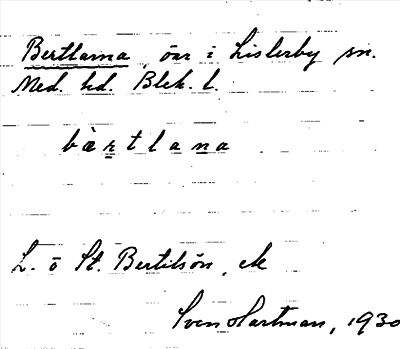 Bertlarna, öar i Listerby sn.
Med. hd. Blek. l.
bà̱rtlana
L. ö St. Bertilsön, ek
Sven Hartman, 1930